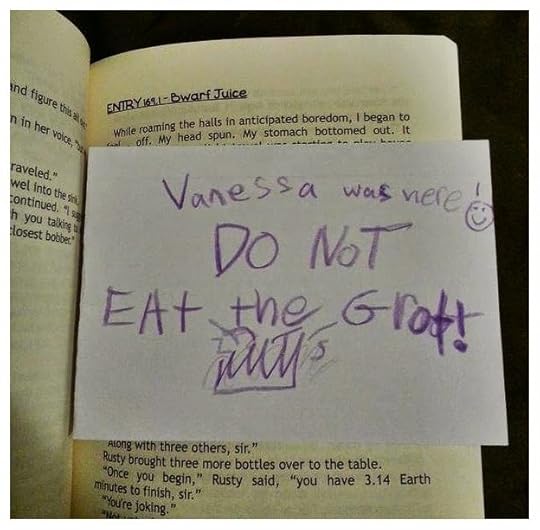 and figure this all
n in her voice,
raveled."
wel into the sink.
continued. "I
h you talking
closest bobber."
ENTRY 169.1 - Bwarf Juice
While roaming the halls in anticipated boredom, I began to
off. My head spun. My stomach bottomed out. It
Vanessa was here!
DO NOT
EAt the Grot!
Along with three others, sir."
Rusty brought three more bottles over to the table.
"Once you begin," Rusty said, "you have 3.14 Earth
minutes to finish, sir."
"You're joking."